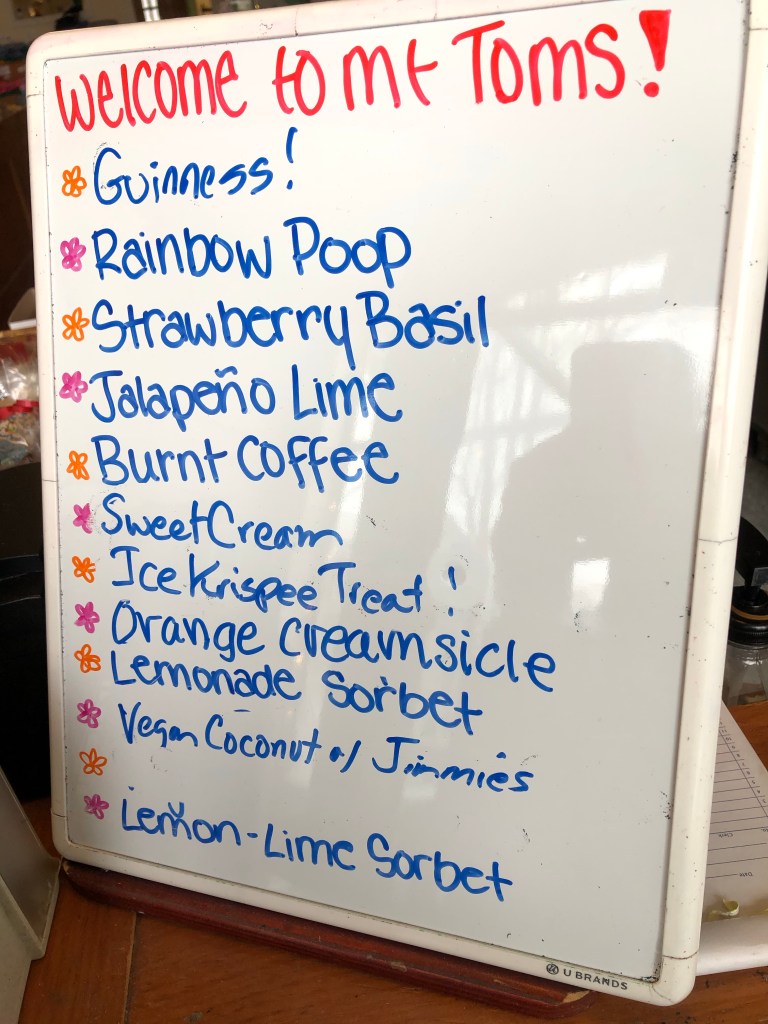 Welcome to mt Toms!
Guinness!
Rainbow Poop
Strawberry Basil
Jalapeño Lime
Burnt Coffee
Sweet Cream
Ice Krispee Treat!
Orange Creamsicle
Lemonade Sorbet
Vegan Coconut w/ Jimmies
Lemon-Lime Sorbet
U BRANDS
Date